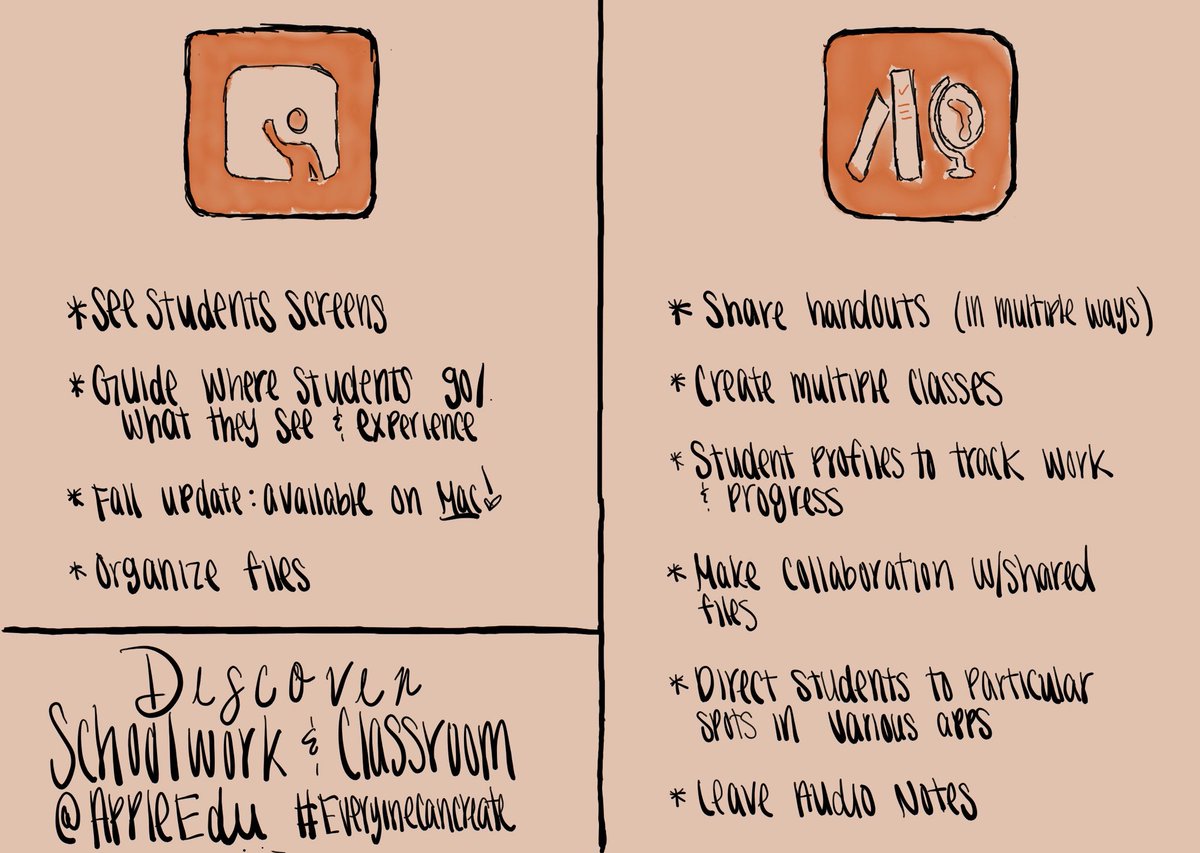 *See Students Screens
*Guide where students go/
what they see & experience
*Fall update: available on Mac!
*Organize files
Discover
Schoolwork & Classroom
@AppleEdu #Everyonecancreate
* Share handouts (in multiple ways)
*Create multiple classes
*Student profiles to track work
& progress
*Make collaboration w/shared
files
*Direct students to particular
spots in various apps
*Leave Audio Notes